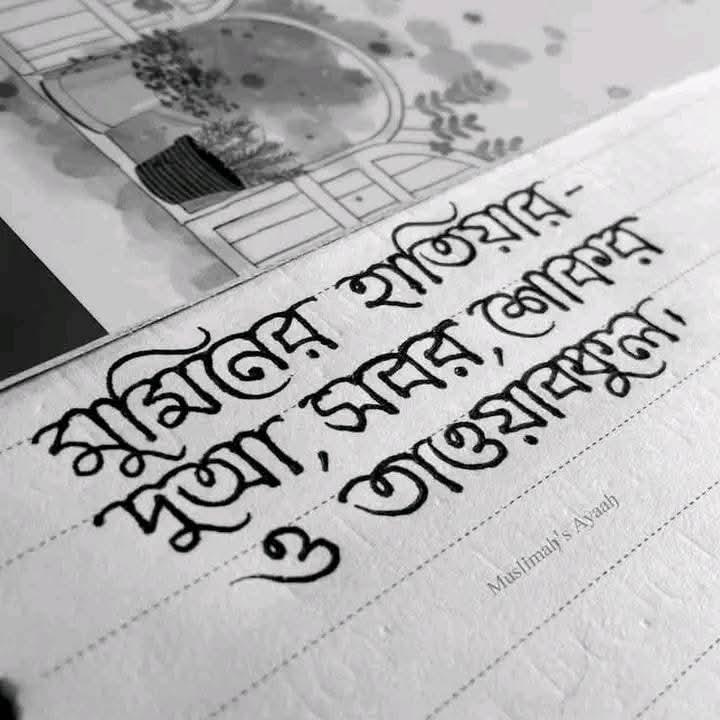 মুমিনের হাতিয়ার-
দুআ, সবর, শোকর
ও তাওয়াক্কুল,
Muslimah's Ayaah